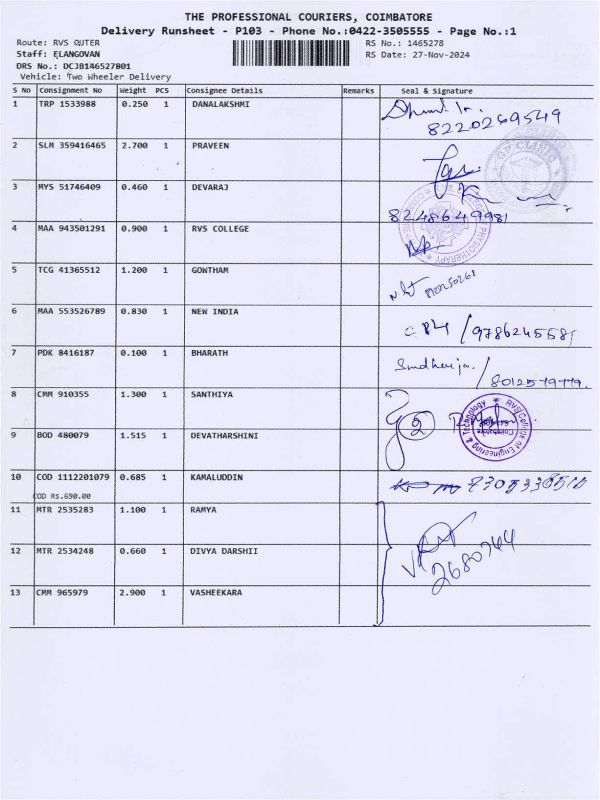 THE PROFESSIONAL COURIERS, COIMBATORE
Delivery Runsheet - P103 - Phone No.:0422-3505555 - Page No.:1
Route: RVS OUTER RS No.: 1465278
Staff: ELANGOVAN RS Date: 27-Nov-2024
DRS No.: DCJB146527801
Vehicle: Two Wheeler Delivery
S No Consignment No Weight PCS Consignee Details Remarks Seal & Signature
1 TRP 1533988 0.250 1 DANALAKSHMI
8220269549
2 SLM 359416465 2.700 1 PRAVEEN
3 MYS 51746409 0.460 1 DEVARAJ
8248649981
4 MAA 943501291 0.900 1 RVS COLLEGE
PHYSIOTHERAPY
5 TCG 41365512 1.200 1 GOWTHAM
6 MAA 553526789 0.830 1 NEW INDIA
7 PDK 8416187 0.100 1 BHARATH
8 CMM 910355 1.300 1 SANTHIYA
2
RVS College of Engineering & Technology
Coimbatore
9 BOD 480079 1.515 1 DEVATHARSHINI
10 COD 1112201079 0.685 1 KAMALUDDIN
COD Rs.690.00
11 MTR 2535283 1.100 1 RAMYA
12 MTR 2534248 0.660 1 DIVYA DARSHII
2680744
13 CMM 965979 2.900 1 VASHEEKARA